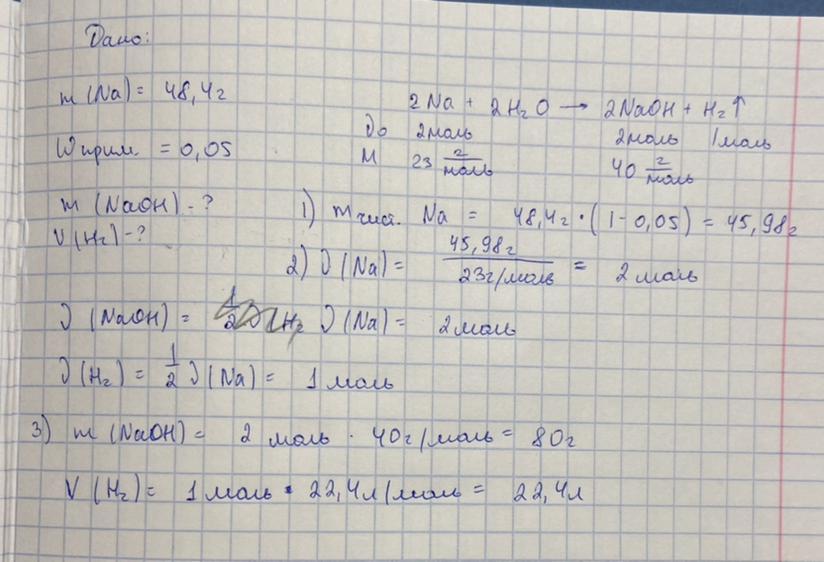 Дано:
m (Na) = 48,4г
2Na + 2H₂O → 2NaOH + H₂↑
До 2моль 2моль 1моль
Wприм. = 0,05
M 23 г/моль 40 г/моль
m (NaOH) - ?
V (H₂) - ?
1) m чист. Na = 48,4г · (1 - 0,05) = 45,98г
2) ν (Na) = 45,98г / 23г/моль = 2 моль
ν (NaOH) = ν (Na) = 2моль
ν (H₂) = 1/2 ν (Na) = 1 моль
3) m (NaOH) = 2 моль · 40г/моль = 80г
V (H₂) = 1 моль · 22,4л/моль = 22,4л